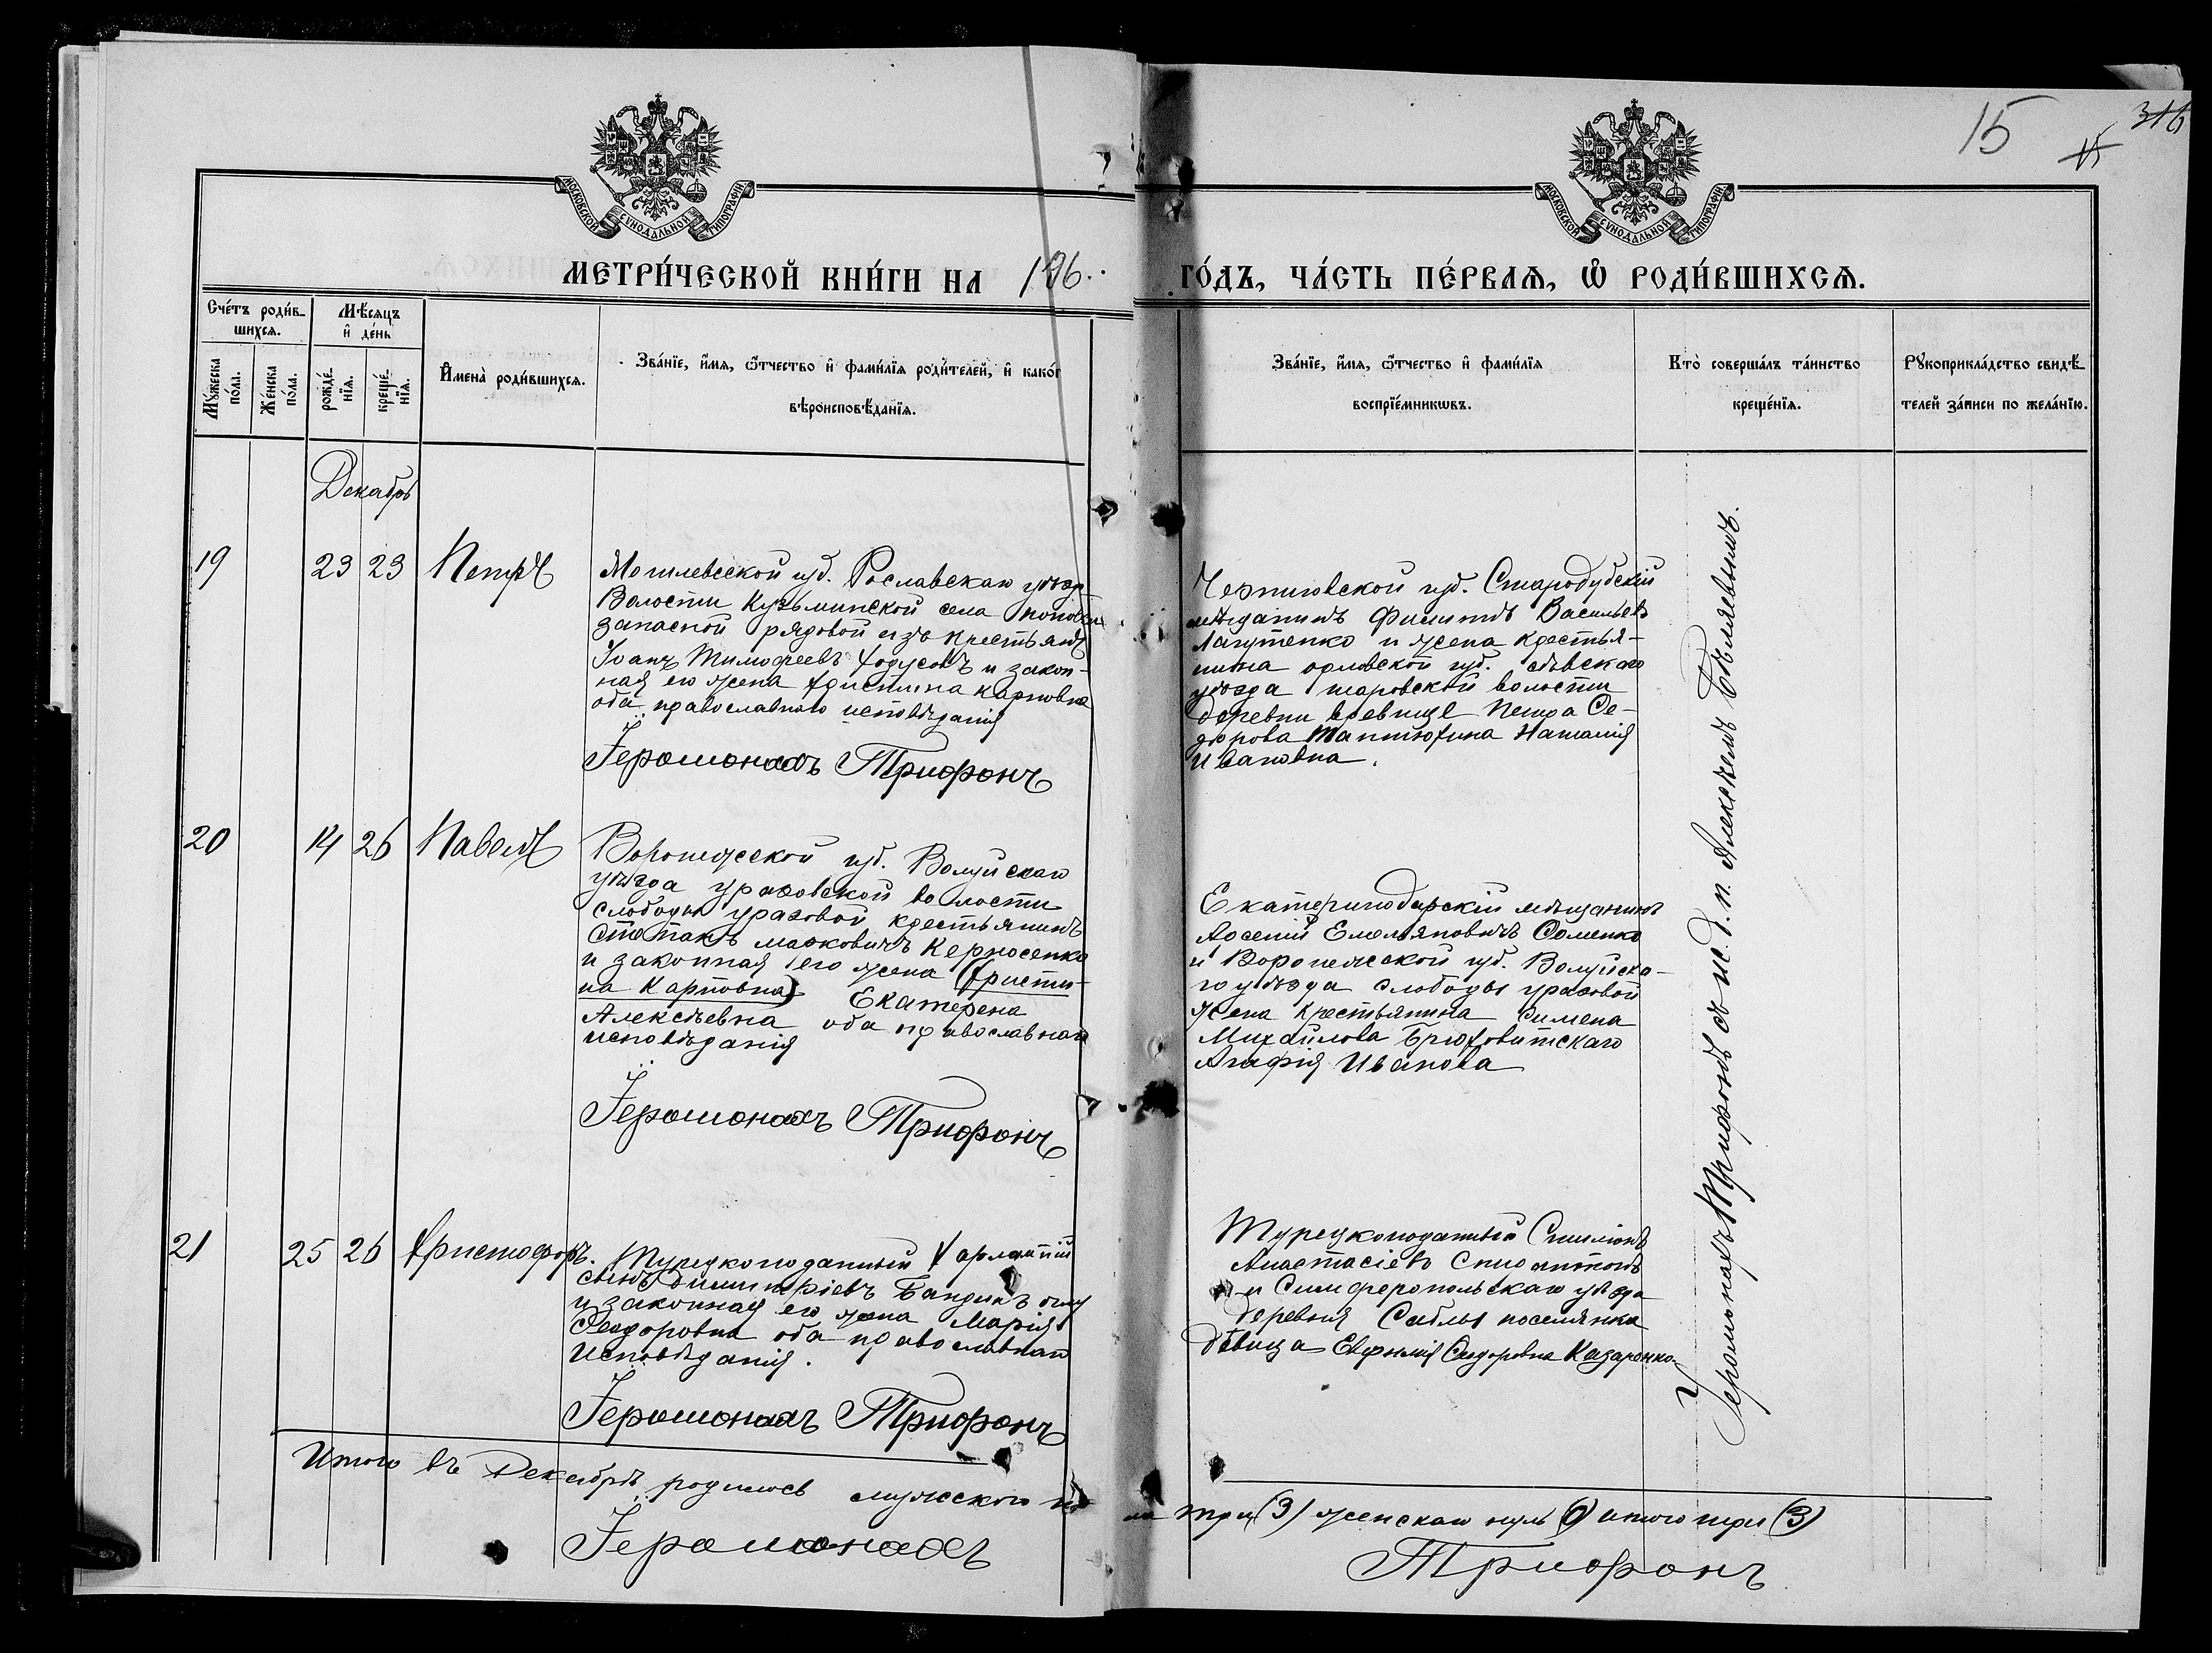 15
15
316
МОСКОВСКОЙ СѴНОДАЛЬНОЙ ТИПОГРАФІИ
МОСКОВСКОЙ СѴНОДАЛЬНОЙ ТИПОГРАФІИ
МЕТРИ́ЧЕСКОЙ КНИ́ГИ НА 1906 ГО́ДЪ, ЧА́СТЬ ПЕ́РВАѦ, Ѽ РОДИ́ВШИХСѦ.
Сче́тъ роди́в-
шихсѧ.
Мꙋ́жеска по́ла.
Же́нска по́ла.
Мѣ́сѧцъ
и҆ де́нь
рожде́-
нїѧ.
креще́-
нїѧ.
И҆мена̀ роди́вшихсѧ.
Зва́нїе, и҆́мѧ, ѻ҆́тчество и҆ фами́лїѧ роди́телей, и҆ како́г
вѣроисповѣ́данїѧ.
Зва́нїе, и҆́мѧ, ѻ҆́тчество и҆ фами́лїѧ
воспрїе́мникѡвъ.
Кто̀ соверша́лъ та́инство
креще́нїѧ.
Рꙋкоприкла́дство свидѣ́-
телей за́писи по жела́нїю.
Декабрь
19 23 23 Петръ
Могилевской губ. Рославскаго уѣзд
Волости Кузьминской села Поповки
запасной рядовой изъ крестьянъ
Іоанъ Тимофеевъ Ходусовъ и закон-
ная его жена Христина Карповна
оба православнаго исповѣданія
Іеромонахъ Трифонъ
Черниговской губ. Стародубскій
мѣщанинъ Филиппъ Васильевъ
Лагутенко и жена крестья-
нина орловской губ. сѣвскаго
уѣзда шаровской волости
деревни Петра Се-
дорова Наталія
Ивановна.
20 14 26 Павелъ
Воронежской губ. Волуйскаго
уѣзда уразовской волости
слободы уразовой крестьянинъ
марковичъ Керносенко
и законная его жена (Христи-
на Карповна) Екатерена
Алексѣевна оба православнаго
исповѣданія
Іеромонахъ Трифонъ
Екатеринодарскій мѣщанинъ
Арсеній Емельяновичъ Соменко
и Воронежской губ. Волуйска-
го уѣзда слободы уразовой
жена крестьянина Симена
Михайлова Брюховитскаго
Агафія Иванова
21 25 26 Христофоръ.
Турецкоподанный Харлампій
сынъ Димитріевъ
и законная его жена Марія
Феодоровна оба православнаго
Исповѣданія.
Іеромонахъ Трифонъ
Турецкоподанный
Анастасіевъ
и Симферопольскаго уѣзда
деревня Саблы поселянка
дѣвица Евфимія Сидоровна Казаренко.
Іеромонахъ Трифонъ съ и. д. п. Алексѣемъ Бѣляевымъ.
Итого въ Декабрѣ родилось мужеского по-
ла три (3) женскаго нуль (0) итого три (3)
Іеромонахъ Трифонъ